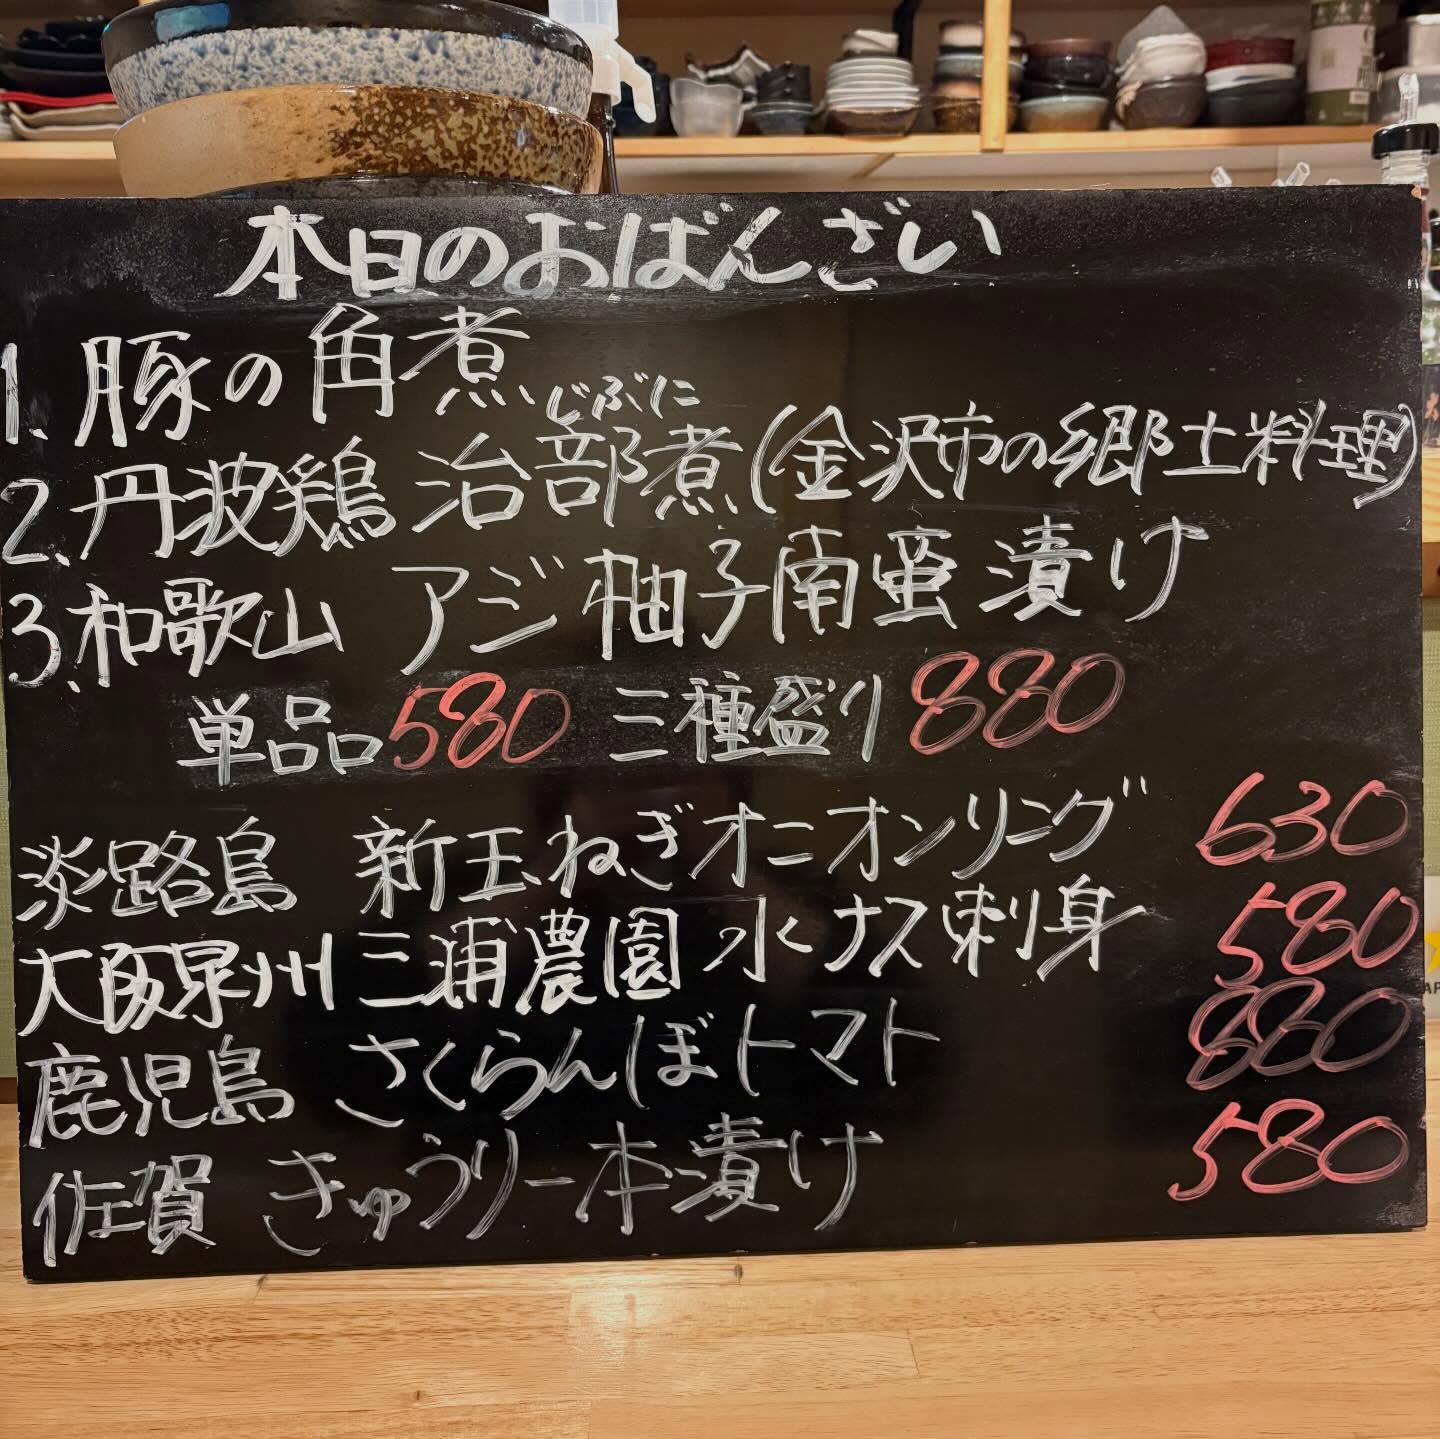 本日のおばんざい
1. 豚の角煮
じぶに
2. 丹波鶏 治部煮(金沢市の郷土料理)
3. 和歌山 アジ柚子南蛮漬け
単品580 三種盛り880
淡路島 新玉ねぎオニオンリング 630
大阪泉州 三浦農園 水ナス刺身 580
鹿児島 さくらんぼトマト 880
佐賀 きゅうり一本漬け 580